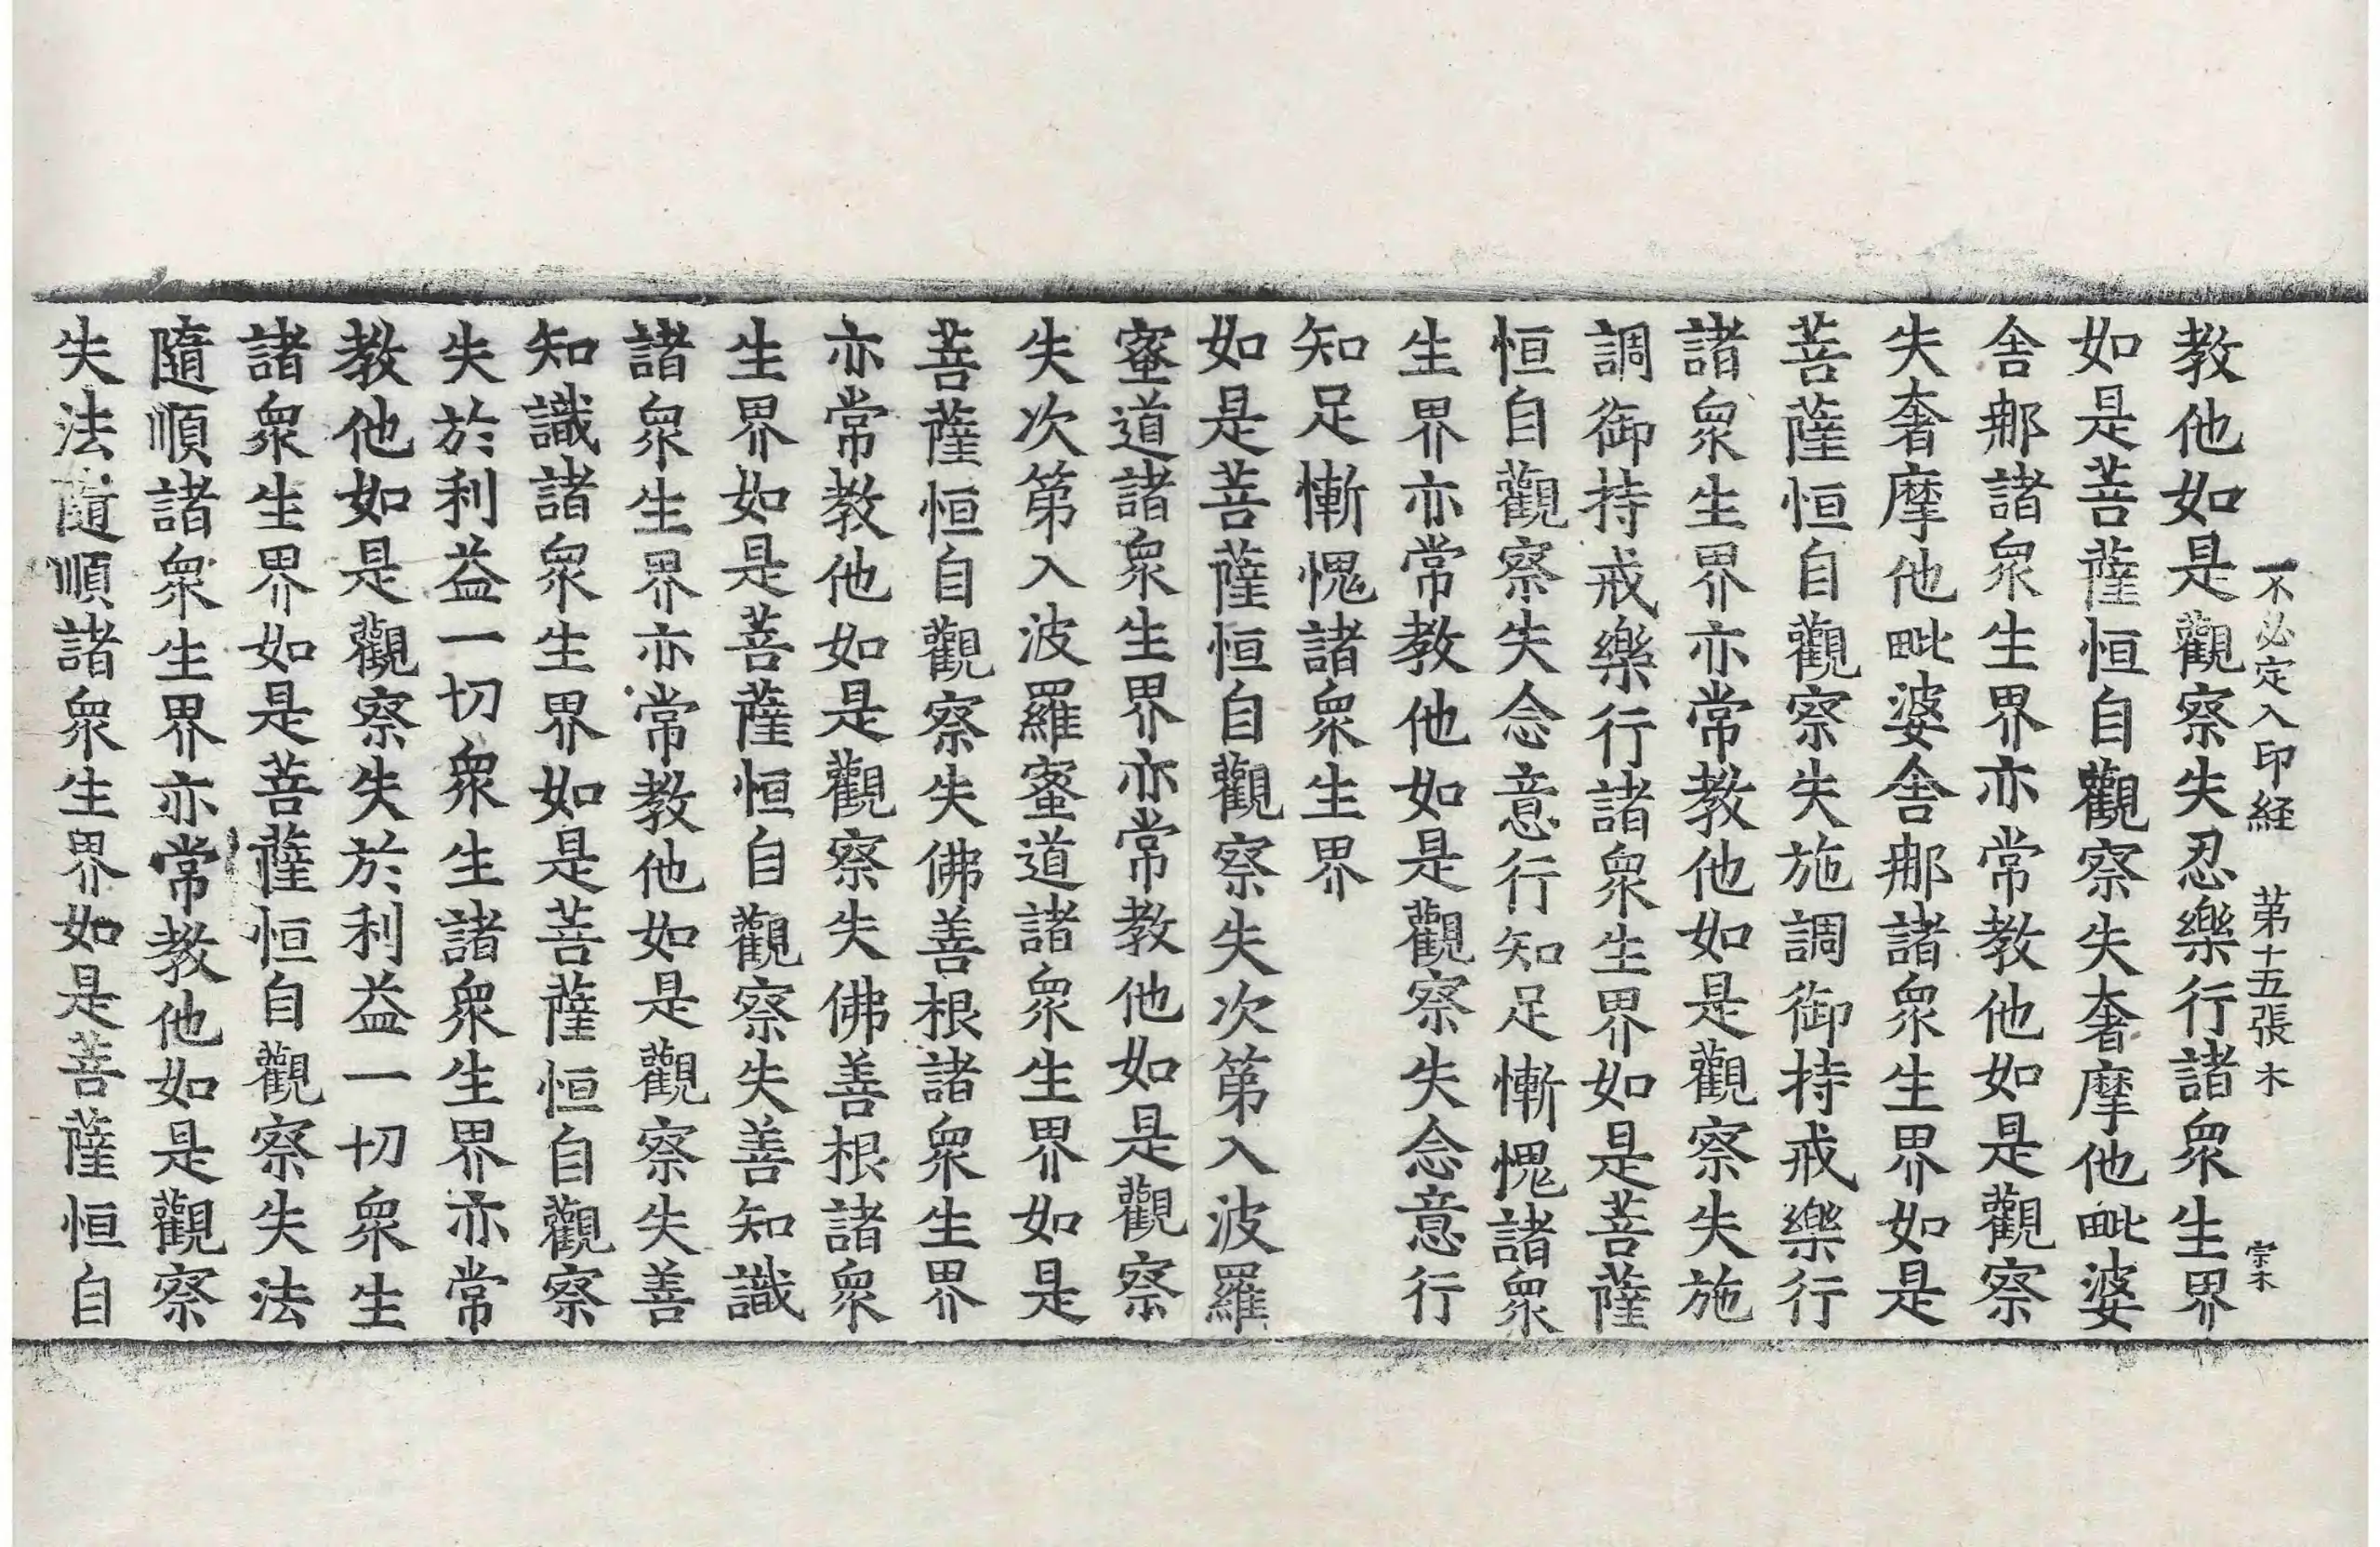 不必定入印経 第十五張 木 宗木
教他如是觀察失忍樂行諸衆生界
如是菩薩恒自觀察失奢摩他毗婆
舍那諸衆生界亦常教他如是觀察
失奢摩他毗婆舍那諸衆生界如是
菩薩恒自觀察失施調御持戒樂行
諸衆生界亦常教他如是觀察失施
調御持戒樂行諸衆生界如是菩薩
恒自觀察失念意行知足慚愧諸衆
生界亦常教他如是觀察失念意行
知足慚愧諸衆生界
如是菩薩恒自觀察失次第入波羅
蜜道諸衆生界亦常教他如是觀察
失次第入波羅蜜道諸衆生界如是
菩薩恒自觀察失佛善根諸衆生界
亦常教他如是觀察失佛善根諸衆
生界如是菩薩恒自觀察失善知識
諸衆生界亦常教他如是觀察失善
知識諸衆生界如是菩薩恒自觀察
失於利益一切衆生諸衆生界亦常
教他如是觀察失於利益一切衆生
諸衆生界如是菩薩恒自觀察失法
隨順諸衆生界亦常教他如是觀察
失法隨順諸衆生界如是菩薩恒自